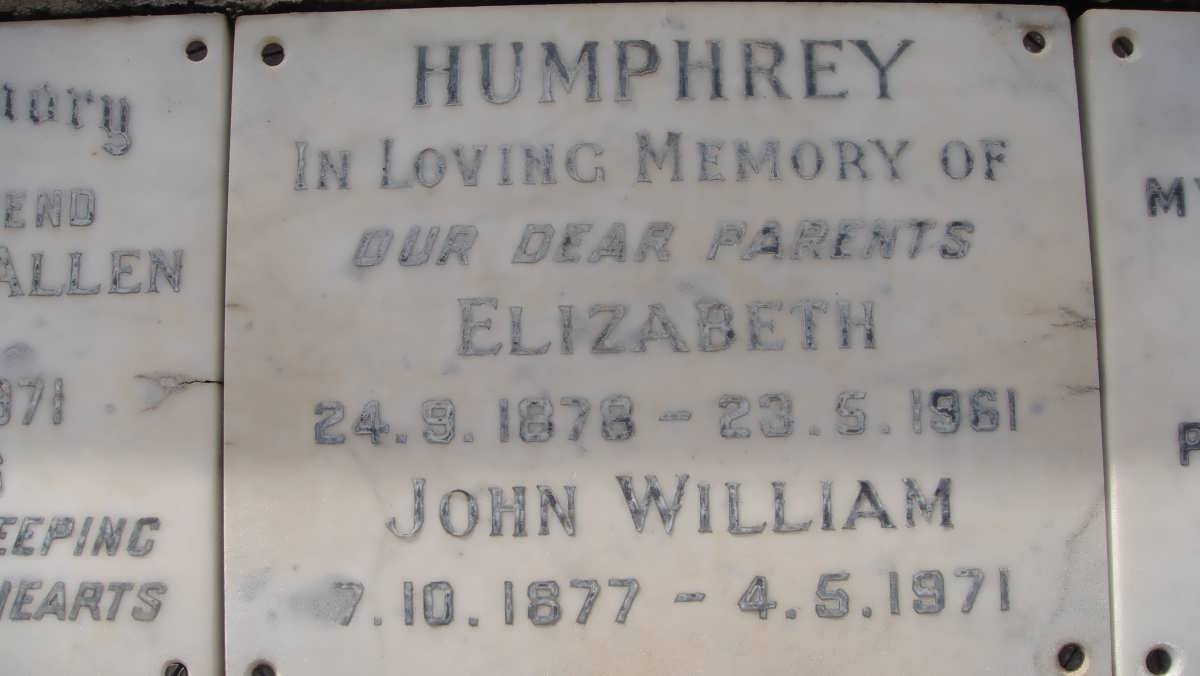 HUMPHREY
IN LOVING MEMORY OF
OUR DEAR PARENTS
ELIZABETH
24.9.1878 - 23.5.1961
JOHN WILLIAM
7.10.1877 - 4.5.1971
ALLEN
HEARTS